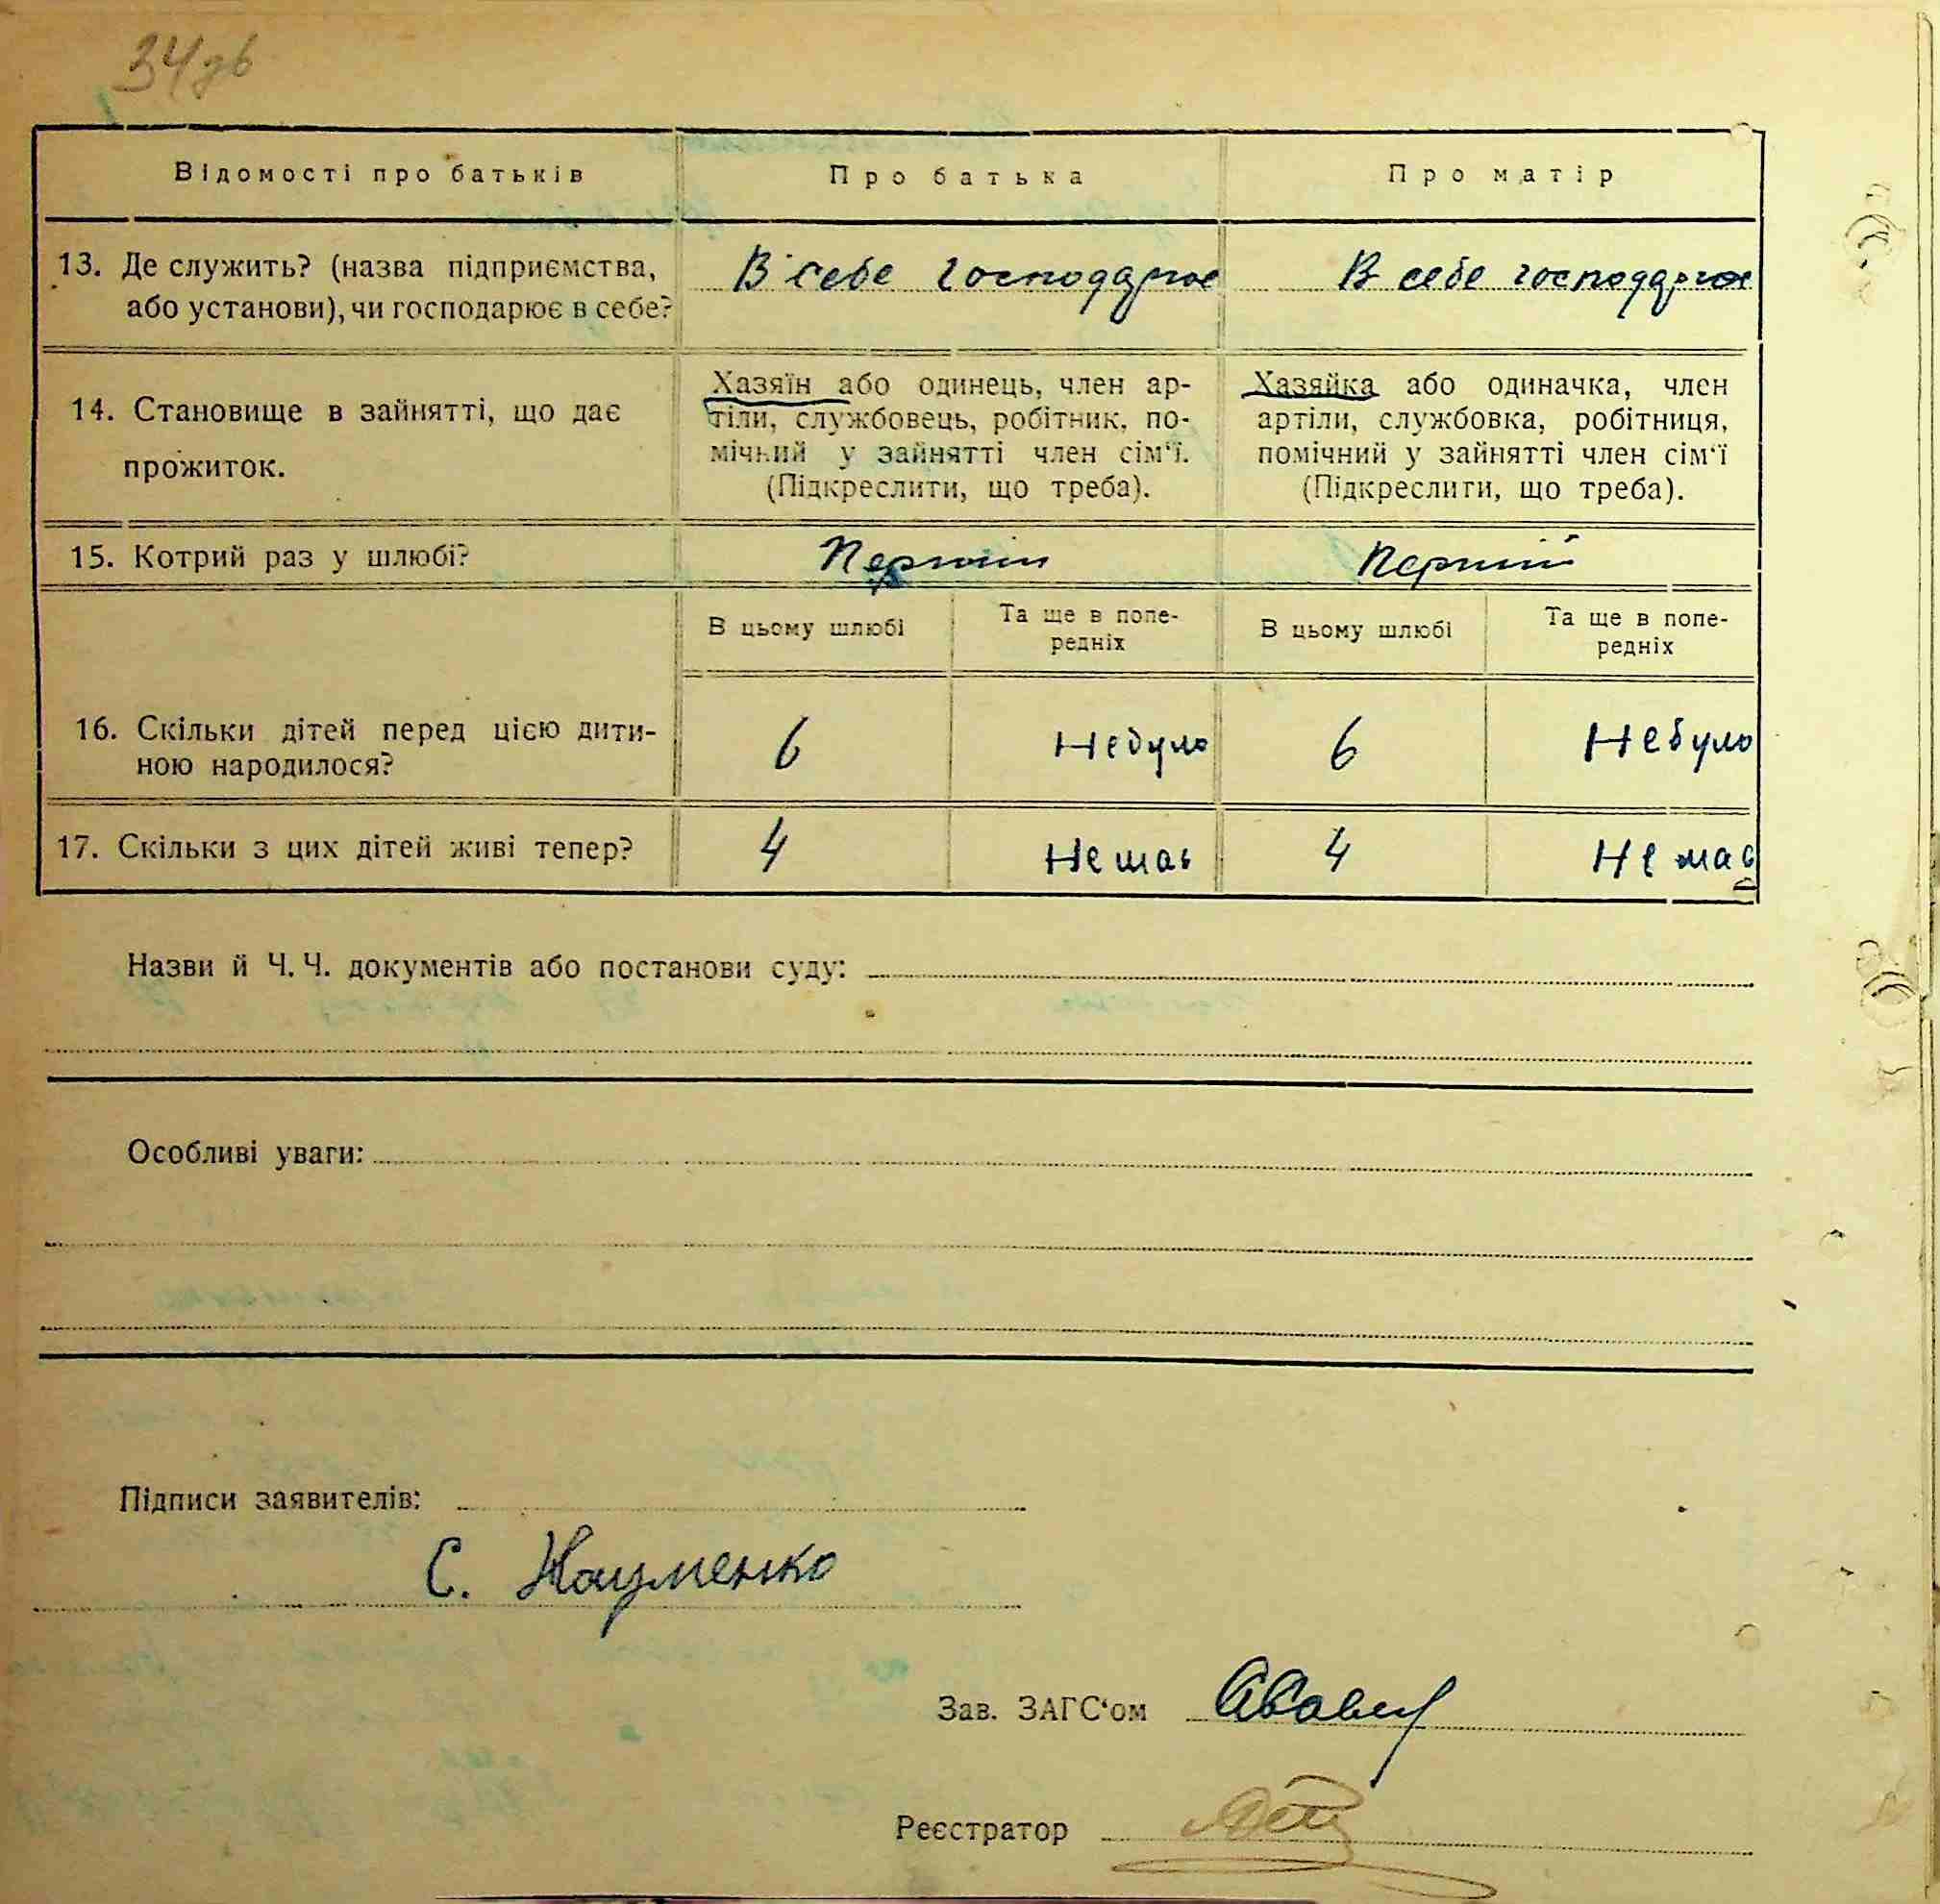 34зв
Відомості про батьків Про батька Про матір
13. Де служить? (назва підприємства, або установи), чи господарює в себе? В себе господарює В себе господарює
14. Становище в зайнятті, що дає прожиток.
Хазяїн або одинець, член ар-
тіли, службовець, робітник, по-
мічний у зайнятті член сім'ї.
(Підкреслити, що треба).
Хазяйка або одиначка, член
артіли, службовка, робітниця,
помічний у зайнятті член сім'ї
(Підкреслити, що треба).
15. Котрий раз у шлюбі? Перший Перший
В цьому шлюбі Та ще в попе-
редніх
В цьому шлюбі Та ще в попе-
редніх
16. Скільки дітей перед цією дити-
ною народилося? 6 Небуло 6 Небуло
17. Скільки з цих дітей живі тепер? 4 Немає 4 Немає
Назви й Ч. Ч. документів або постанови суду:
Особливі уваги:
Підписи заявителів:
С. Науменко
Зав. ЗАГС'ом
Реєстратор